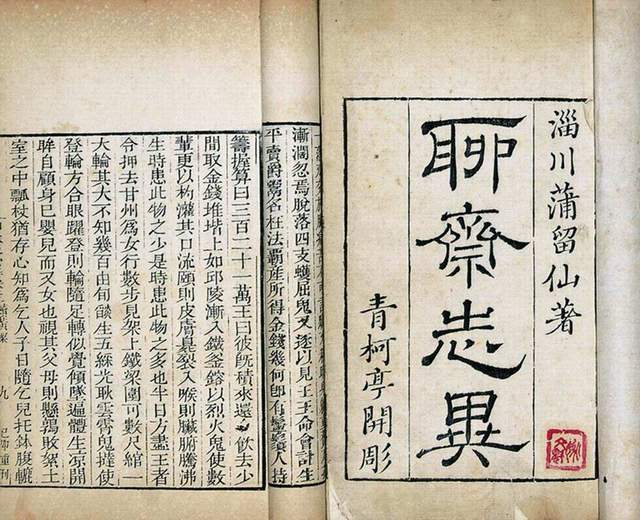 淄川蒲留仙著
聊齋志異
青柯亭開彫
漸濶忽焉脫落四支蠖屈鬼又逐以見王王命會計生
平賣爵鬻名枉法霸產所得金錢幾何卽有鬚人持
籌握算曰三百二十一萬王曰彼旣積來還飲去少
間取金錢堆堦上如邱陵漸入鐵釜鎔以烈火鬼使數
輩更以杓灌其口流頤則皮膚臭裂入喉則臟腑騰沸
生時患此物之少是時患此物之多也半日方盡王者
令押去甘州為女行數步見架上鐵梁圍可數尺綰一
大輪其大不知幾百由旬燄生五綵光耿雲霄鬼撻使
登輪方合眼躍登則輪隨足轉似覺傾墜遍體生涼開
眸自顧身已嬰兒而又女也視其父母則懸鶉敗絮土
室之中瓢杖猶存心知為乞人子日隨乞兒托鉢腹轆
九
重刊